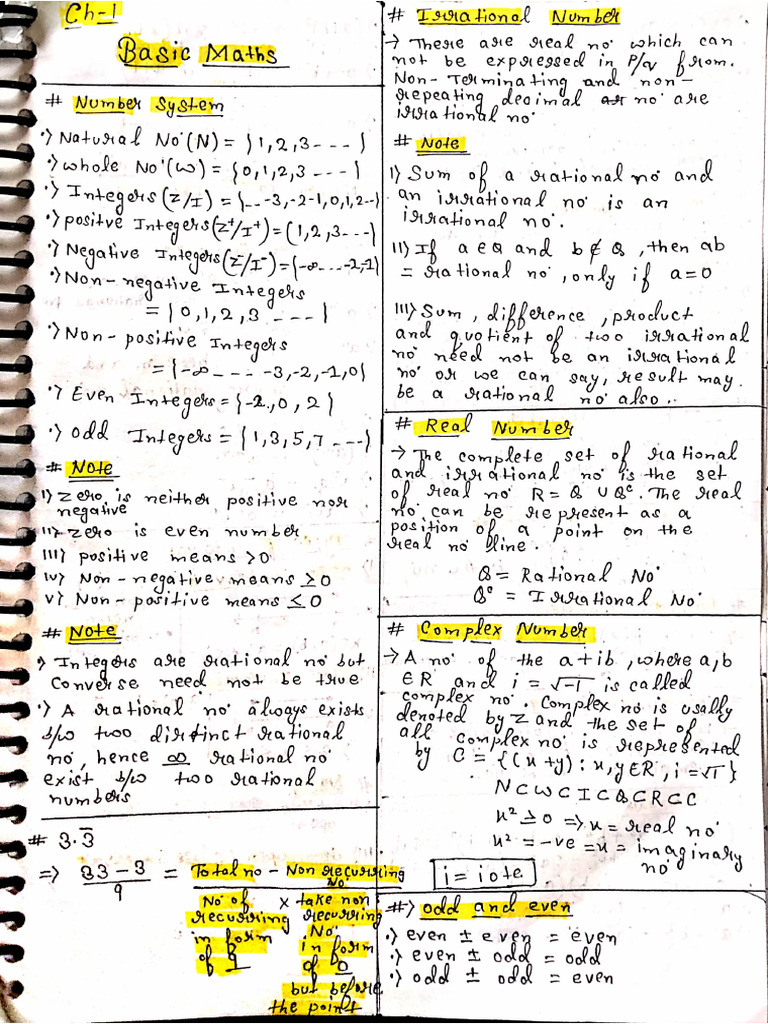 Ch-1
Basic Maths
# Number System
·) Natural No·(N) = {1,2,3---}
·) whole No·(w) = {0,1,2,3 ---}
·) Integers (Z/I) = {-- -3,-2-1,0,1,2--}
·) positve Integers(Z⁺/I⁺) = (1,2,3---}
·) Negative Integers(Z⁻/I⁻) = {-∞---2,-1}
·) Non-negative Integers
= {0,1,2,3 ----}
·) Non-positive Integers
= {-∞---- -3,-2,-1,0}
·) Even Integers = {-2.,0,2}
·) odd Integers = {1,3,5,7 ---}
# Note
I) Zero is neither positive nor
negative
II) Zero is even number
III) positive means >0
IV) Non-negative means ≥0
V) Non-positive means ≤0
# Note
·) Integers are rational no· but
Converse need not be true
·) A rational no· always exists
b/w two distinct rational
no, hence ∞ rational no·
exist b/w two rational
numbers
# 3.3̅
=> 33-3/9 = Total no - Non recurring No·/No of recurring in form of 9 × take non recurring No. in form of 0 but before the point
# Irrational Number
→ There are real no· which can
not be expressed in P/q from.
Non-Terminating and non-
repeating decimal no· are
irrational no·
# Note
I) Sum of a rational no and
an irrational no· is an
irrational no·.
II) If a∈Q and b∉Q, then ab
= rational no·, only if a=0
III) Sum, difference, product
and quotient of two irrational
no· need not be an irrational
no· or we can say, result may
be a rational no· also..
# Real Number
→ The complete set of rational
and irrational no· is the set
of real no· R = Q ∪ Qᶜ. The real
no· can be represent as a
position of a point on the
real no· line.
Q = Rational No·
Qᶜ = Irrational No·
# Complex Number
→ A no· of the a+ib, where a,b
∈R and i = √-1 is called
complex no·. Complex no· is usally
denoted by Z and the set of
all complex no· is represented
by C = {(x+y): x,y∈R, i=√1}
N⊂W⊂I⊂Q⊂R⊂C
x² ≥ 0 => x = real no·
x² = -ve = x = imaginary
no·
i = iote
#) odd and even
·) even ± even = even
·) even ± odd = odd
·) odd ± odd = even